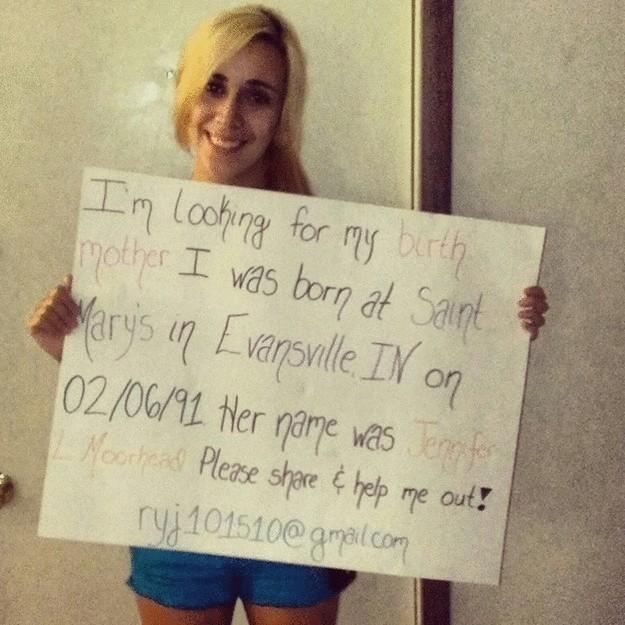 I'm looking for my birth
mother I was born at Saint
Mary's in Evansville, IN on
02/06/91 Her name was Jennifer
L Moorhead Please share & help me out!
ryj101510@gmail.com